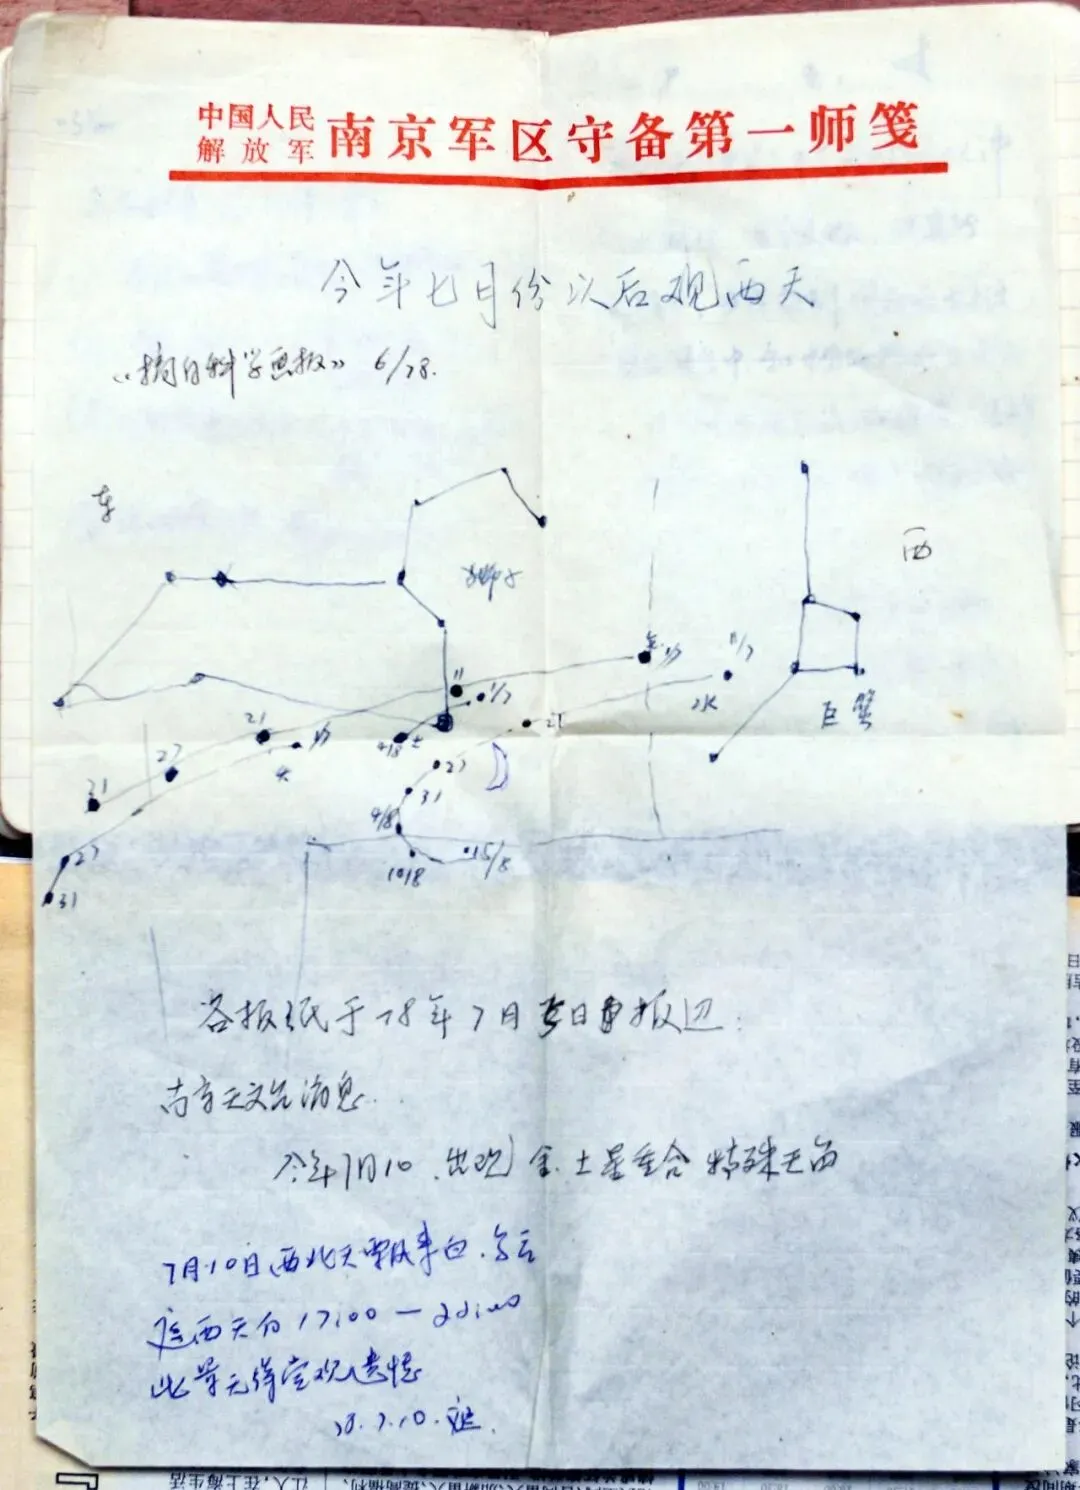 中国人民
解放军 南京军区守备第一师笺
今年七月份以后观西天
《摘自科学画报》 6/78.
东
西
狮子
巨蟹
金 1/7
11/7
水
11
1/7
21
21
1/7
火
4/8 土
27
27
31
31
4/8
10/8
15/8
27
31
各报纸于78年7月5日申报边:
南京天文台消息..
今年7月10.出现 金.土星重合 特殊天象
7月10日西北天飘来白.乌云
遮西天自17:00—22:00
此景无缘空观遗憾
78.7.10.